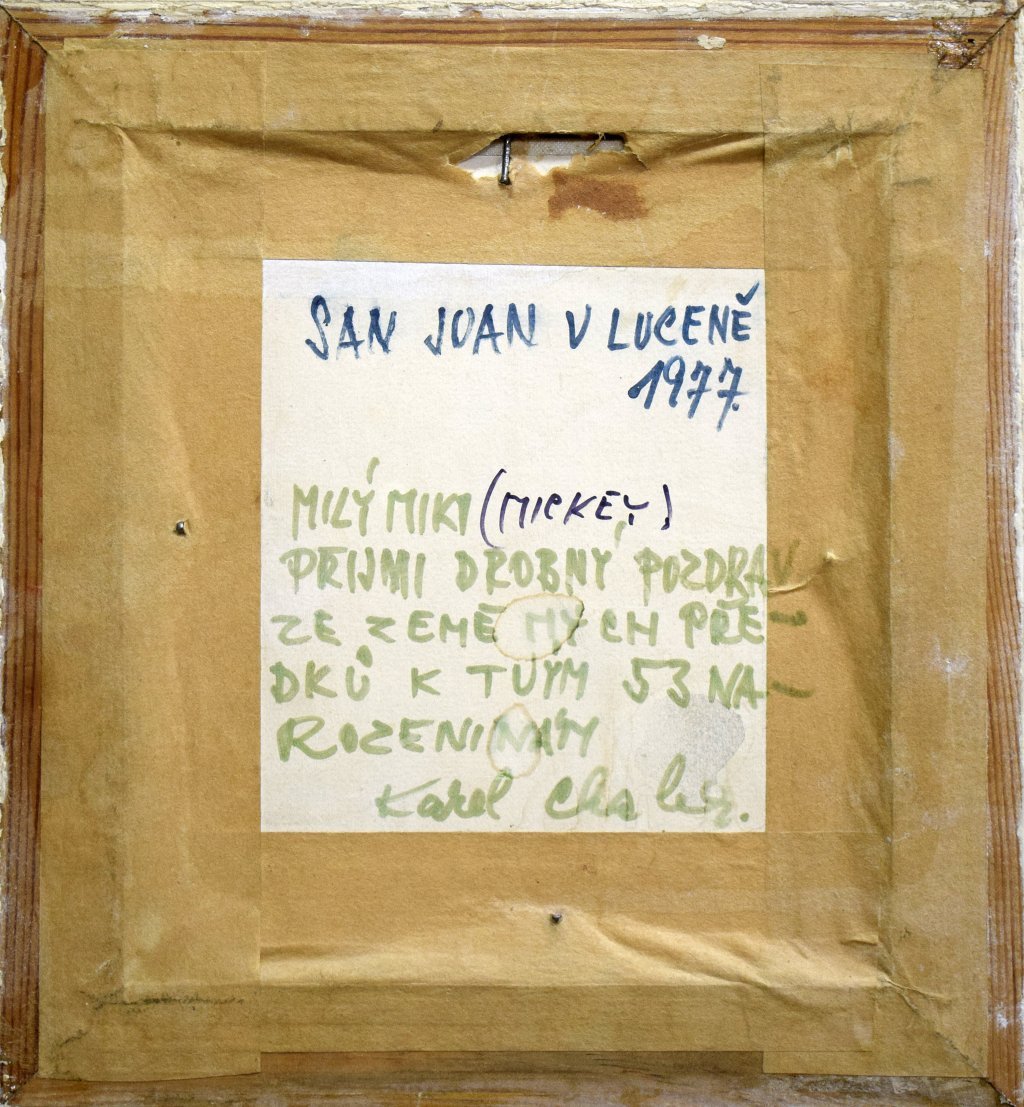 SAN JUAN V LUCENĚ
1977.
MILÝ MIKI (MICKEY)
PŘIJMI DROBNÝ POZDRAV
ZE ZEMĚ MÝCH PŘE-
DKŮ K TVÝM 53 NA-
ROZENINÁM
Karel